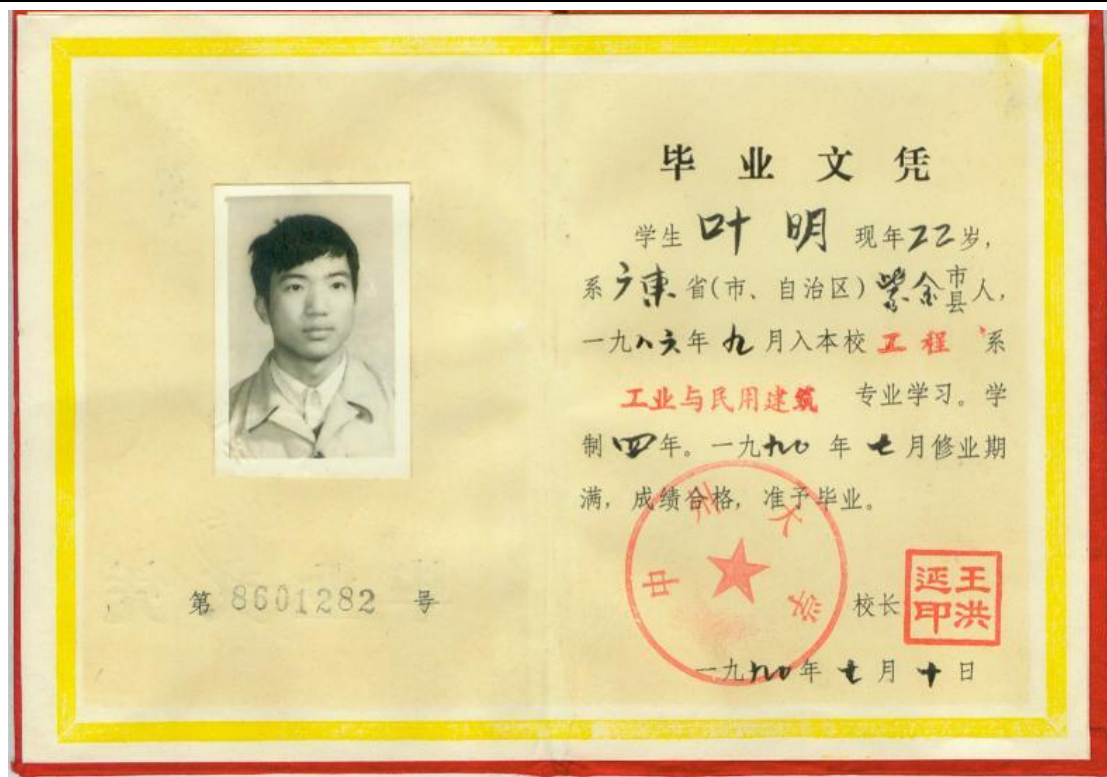 第 8601282 号
毕业文凭
学生 叶明 现年22岁,
系广東省(市、自治区)紫金市县人,
一九八六年九月入本校工程系
工业与民用建筑 专业学习。学
制四年。一九九0年七月修业期
满,成绩合格,准予毕业。
中州大学
校长
王洪延印
一九九0年七月十日